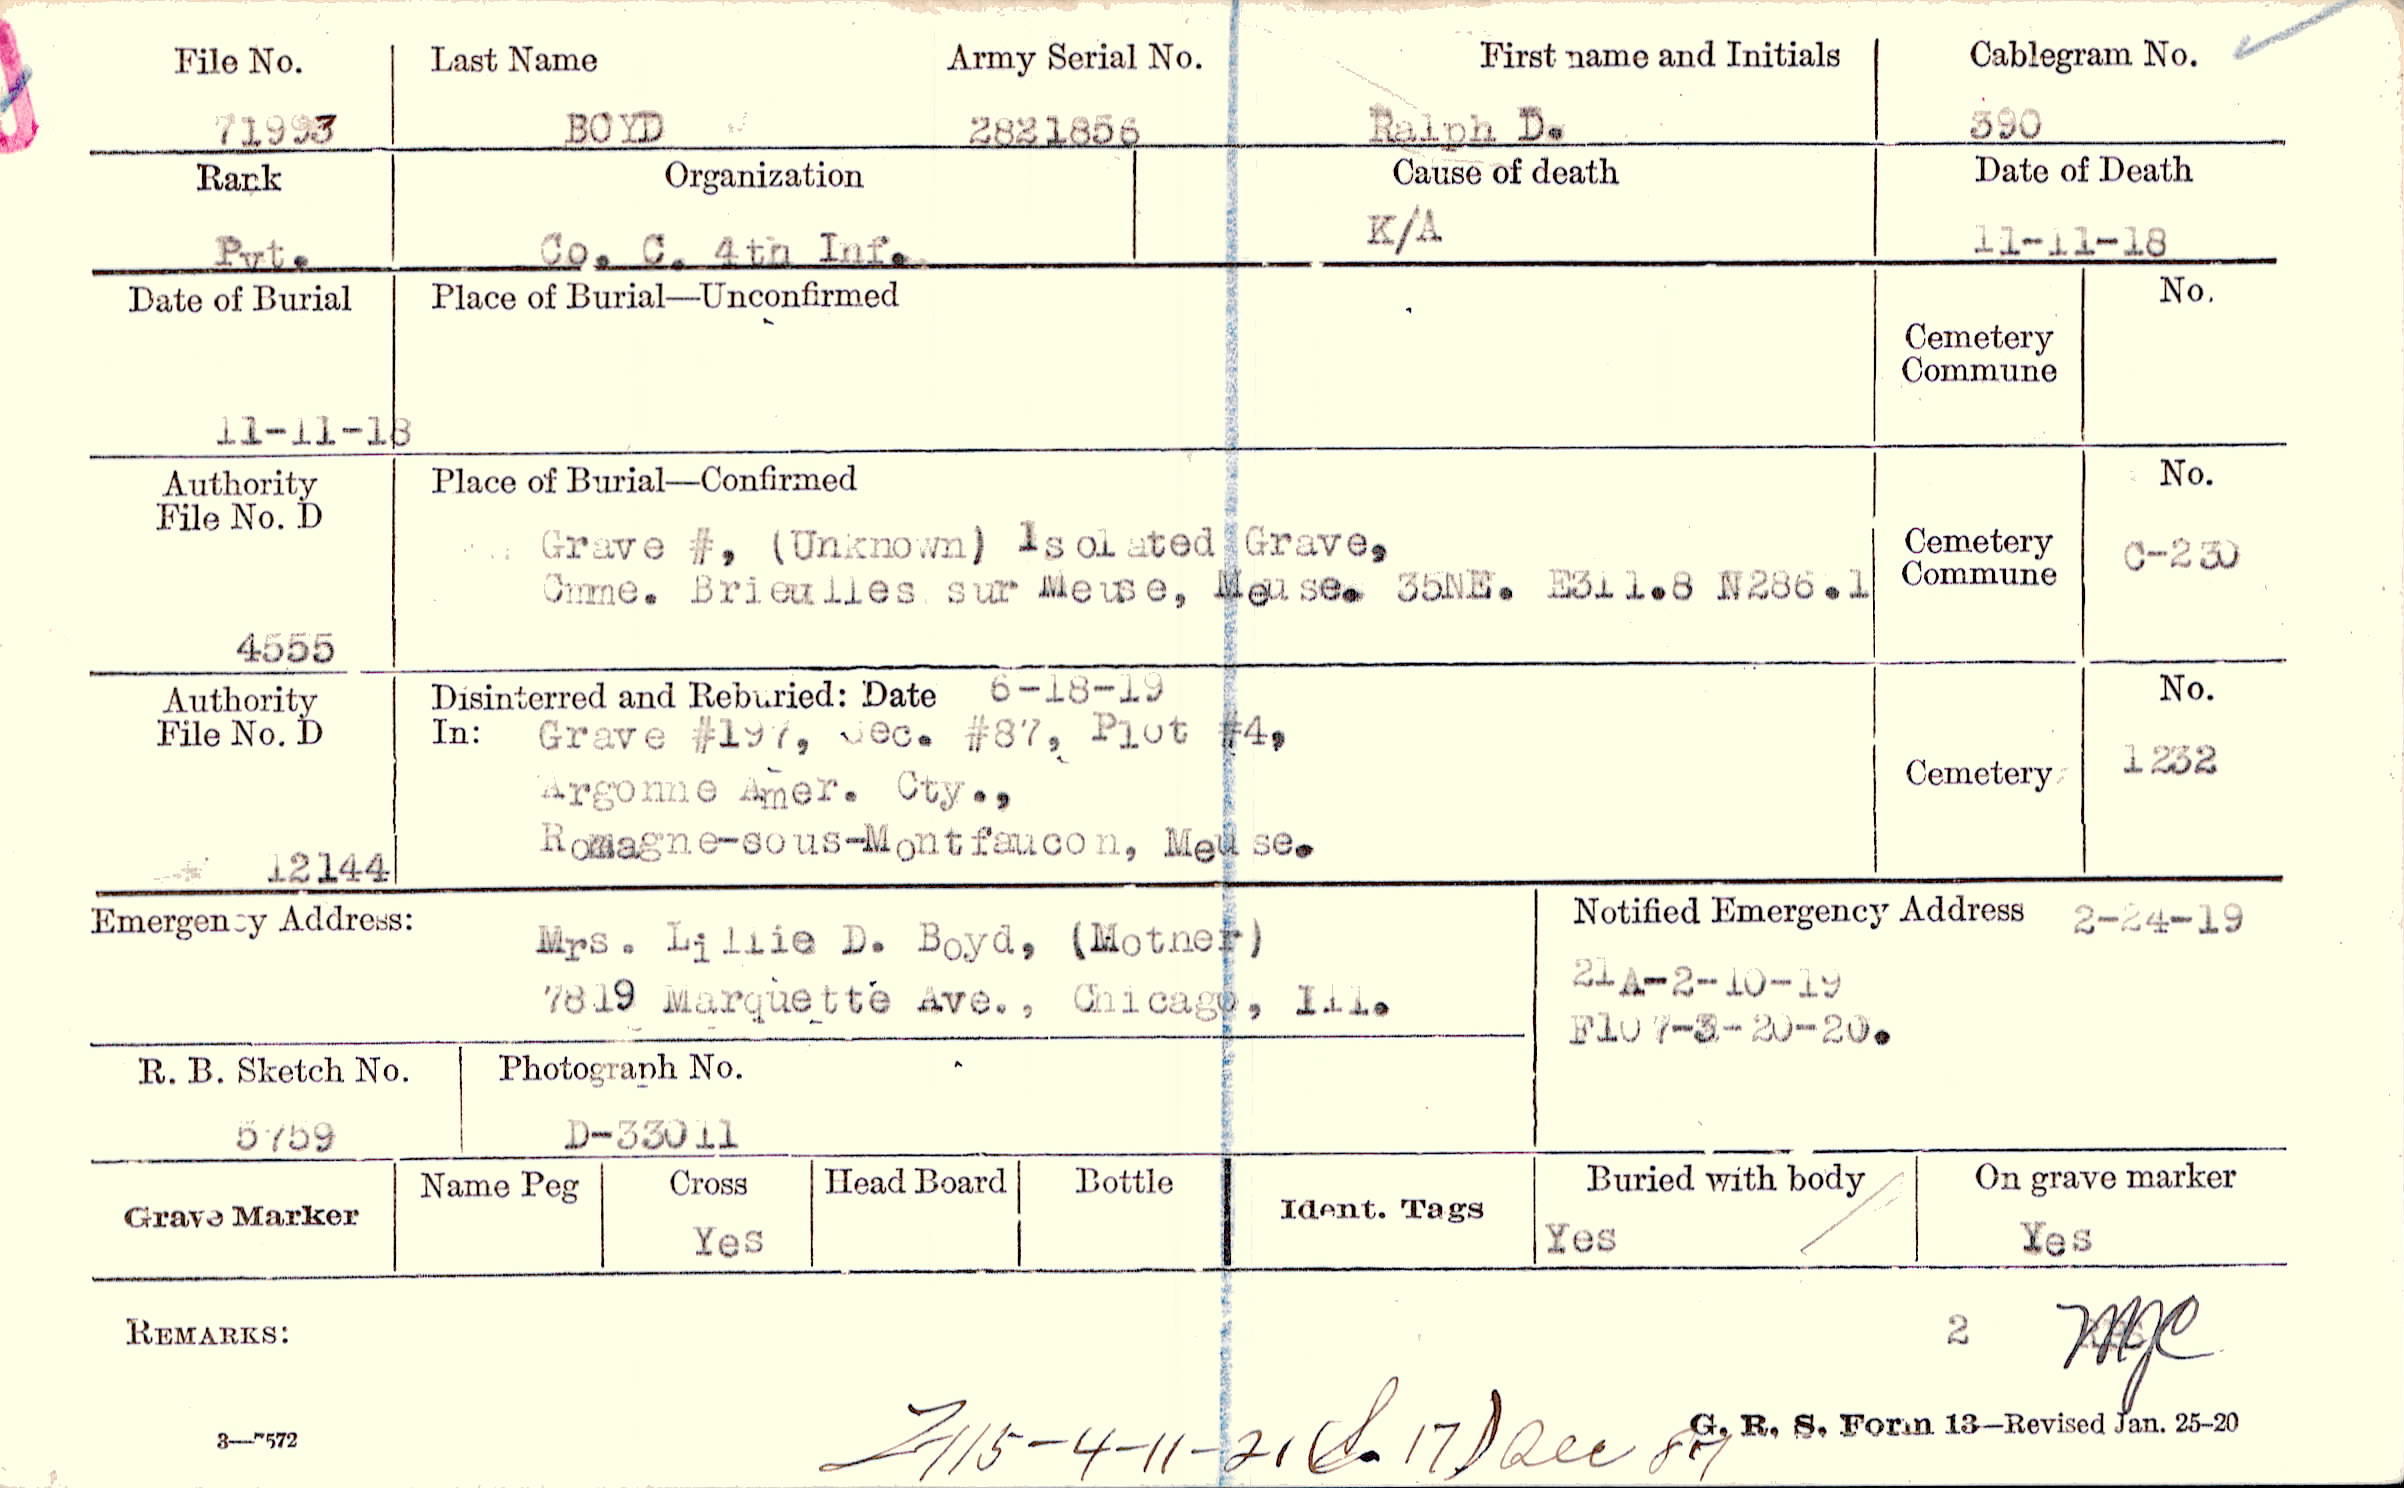 File No. Last Name Army Serial No. First name and Initials Cablegram No.
71993 BOYD 2821856 Ralph D. 390
Rank Organization Cause of death Date of Death
Pvt. Co. C. 4th Inf. K/A 11-11-18
Date of Burial Place of Burial—Unconfirmed No.
Cemetery
Commune
11-11-18
Authority Place of Burial—Confirmed No.
File No. D
Grave #, (Unknown) Isolated Grave, Cemetery C-230
Cmne. Brieulles sur Meuse, Meuse. 35NE. E311.8 N286.1 Commune
4555
Authority Disinterred and Reburied: Date 6-18-19 No.
File No. D In: Grave #197, Sec. #87, Plot #4,
Argonne Amer. Cty., Cemetery 1232
Romagne-sous-Montfaucon, Meuse.
12144
Emergency Address: Notified Emergency Address 2-24-19
Mrs. Lillie D. Boyd, (Mother)
7819 Marquette Ave., Chicago, Ill. 21A-2-10-19
F107-3-20-20.
R. B. Sketch No. Photograph No.
5759 D-33011
Grave Marker Name Peg Cross Head Board Bottle Ident. Tags Buried with body On grave marker
Yes Yes Yes
REMARKS: 2 MJC
G. R. S. Form 13—Revised Jan. 25-20
3—7572 115-4-11-21 (S. 17) Sec 87